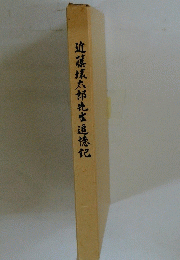 近藤壌太郎先生追憶記